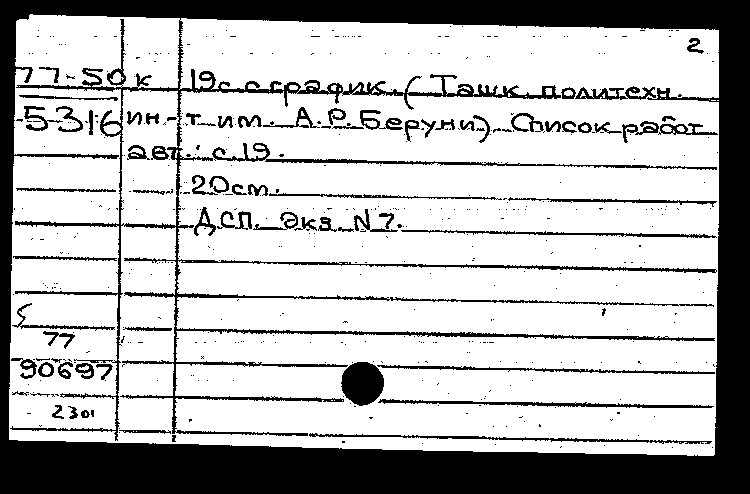 2
77-50к 19с. с график. (Ташк. политехн.
5316 ин-т им. А.Р. Беруни). Список работ
авт.: с. 19.
20см.
ДСП. Экз. N 7.
77
90697
2301